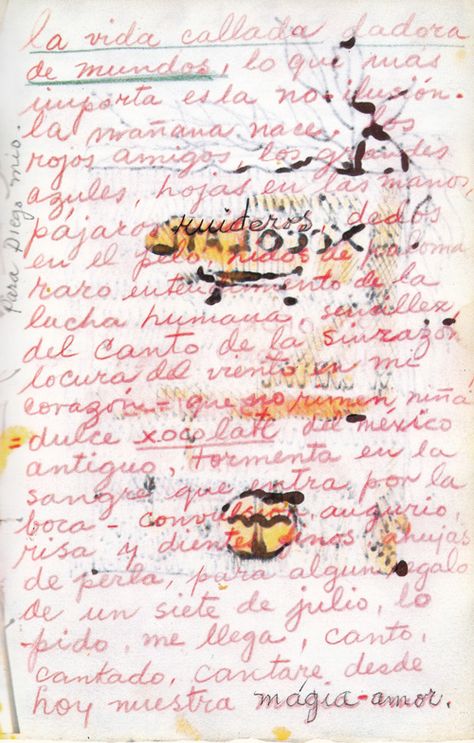 la vida callada dadora
de mundos, lo que más
importa es la no-ilusión.
la mañana nace, los
rojos amigos, los grandes
azules, hojas en las manos
pájaros ruideros, dedos
en el pelo nidos de paloma
raro entendimiento de la
lucha humana, sencillez
del canto de la sinrazón
locura del viento en mi
corazón = que no rimen niña
= dulce xocolatl del méxico
antiguo, tormenta en la
sangre que entra por la
boca - convulsión, augurio,
risa y dientes finos ahujas
de perla, para algun regalo
de un siete de julio, lo
pido, me llega, canto,
cantado, cantaré desde
hoy nuestra mágia - amor.
Para Diego mio.